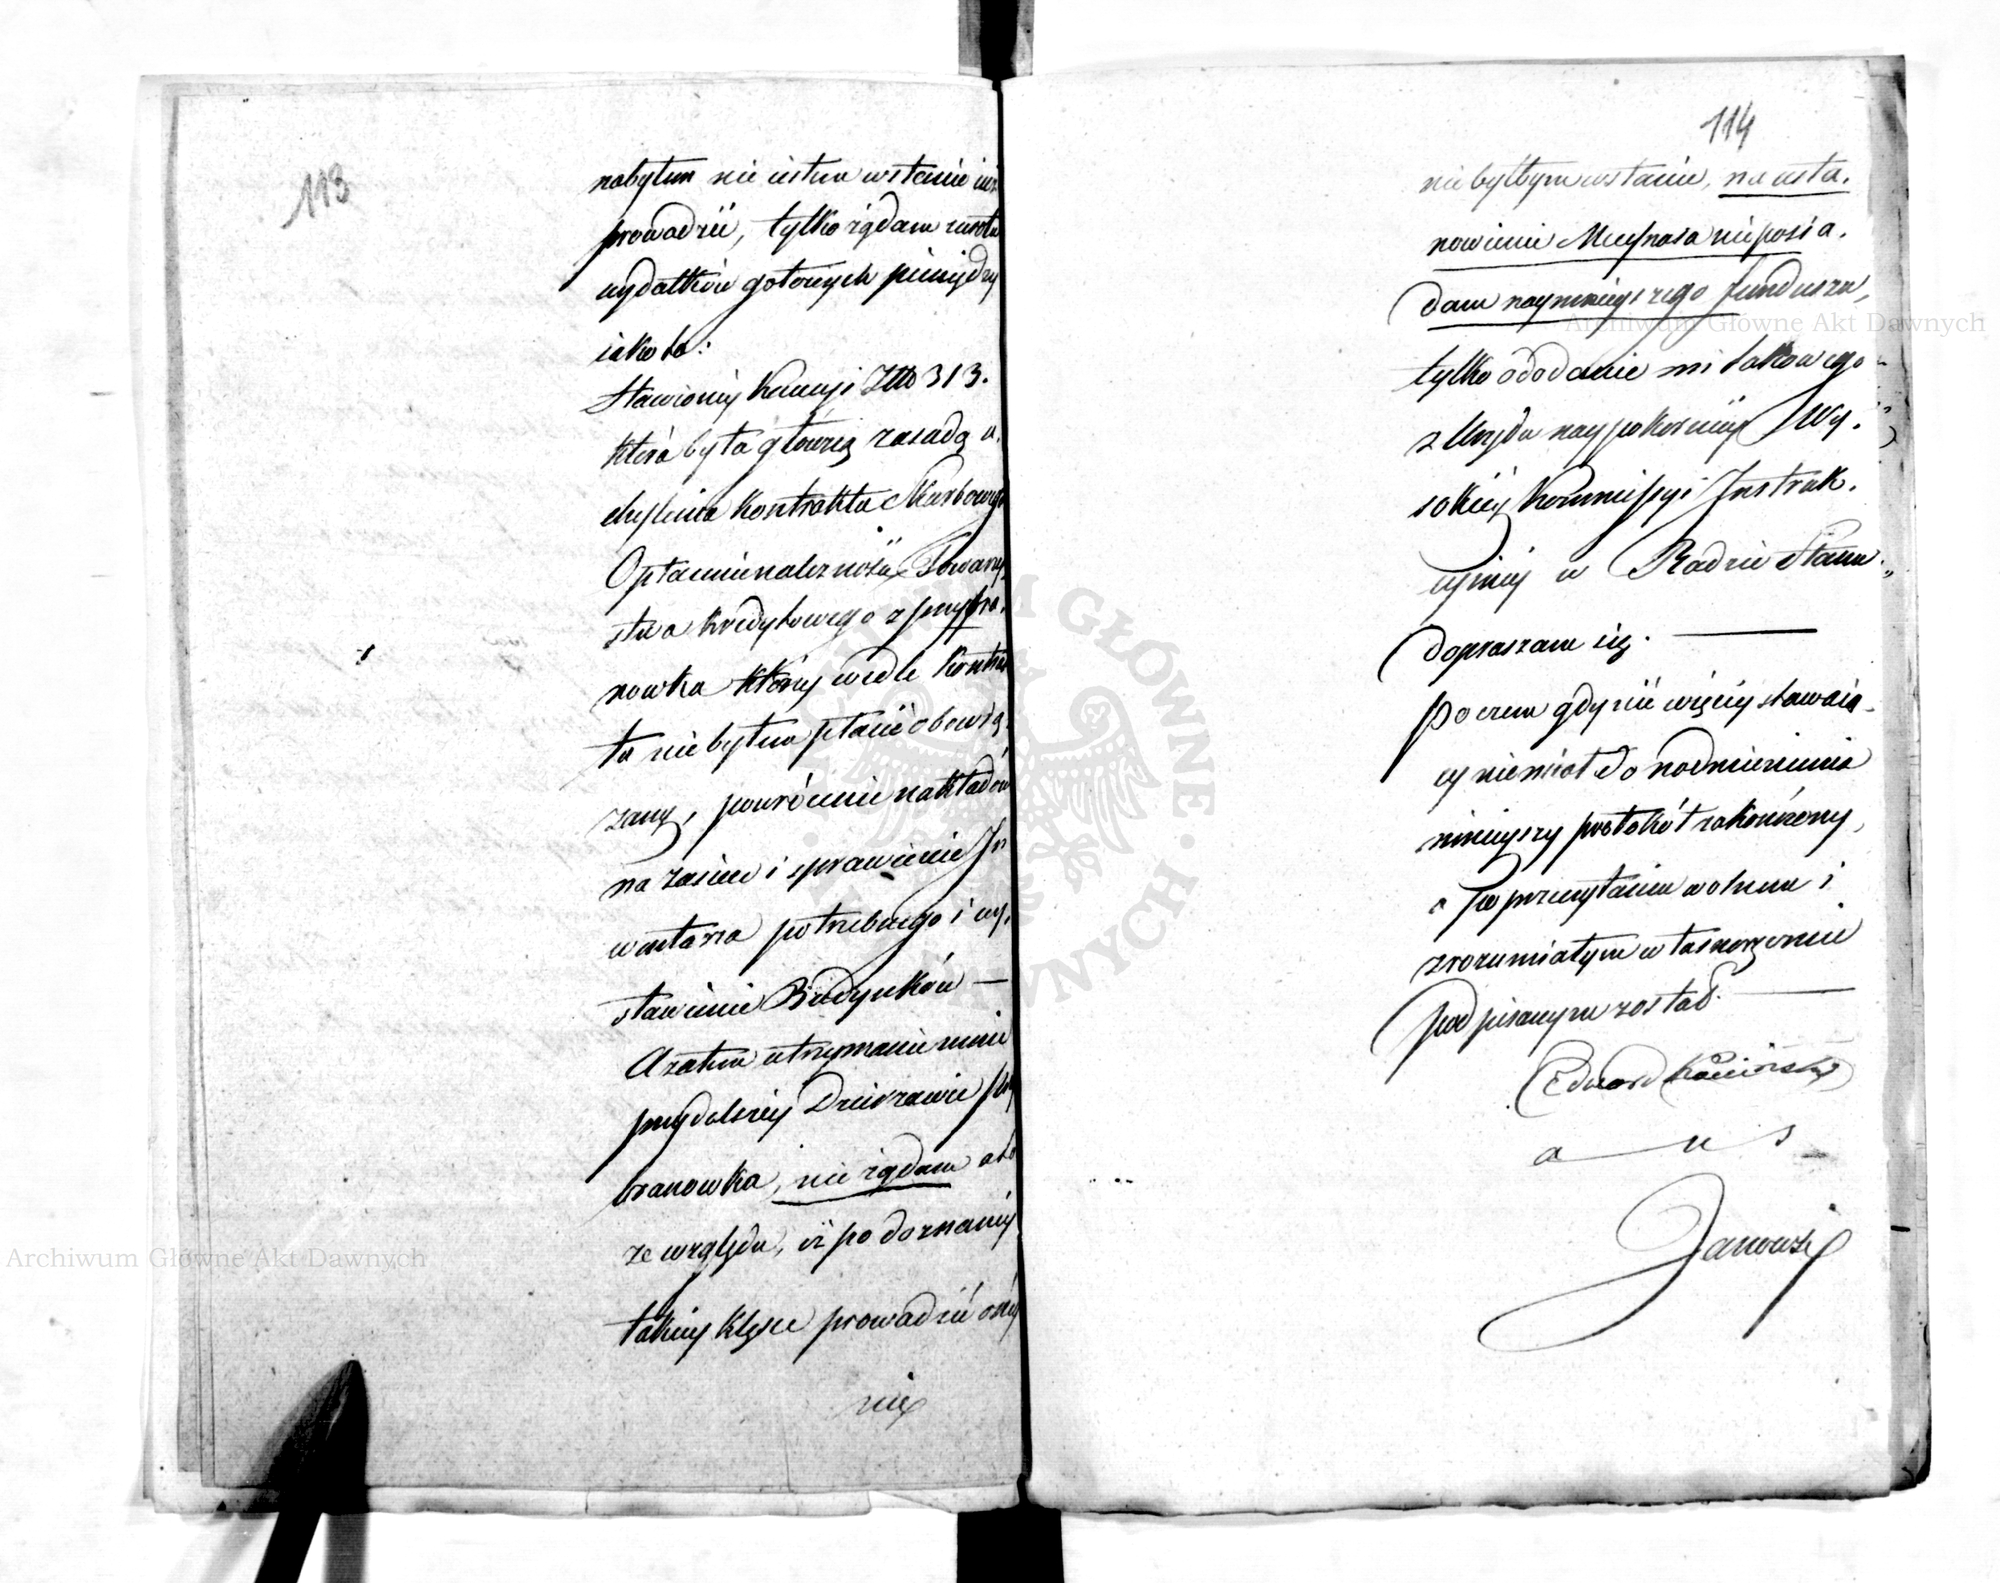 113
nabytem nie iestem wstanie
prowadzić, tylko żądam zwrotu
wydatków gotowych pieniędzy
iakoto:
Stawioney kaucyi Złł 313.
która była główną zasadą u,
chylenia kontraktu Skarbowego
Opłacenie należności Towarzy,
stwa Kredytowego z przybra,
nowka który wedle kontrak
tu nie byłem płacić obowią,
zany, powrócenie nakładów
na zasiew i sprawienie In
wentarza potrzebnego i wy,
stawienie Budynków —
A zatem utrzymanie mnie
przy dalszey Dzierżawie Przy
branowka, nie żądam albo
ze względu, iż po doznaney
takiey klęsce prowadzić oney
nie
114
niebyłbym wstanie, na usta,
nowienie nieposia,
dam naymnieyszego funduszu,
tylko ododanie mi takowego
z Urzędu naypokorniey Wy,
sokiey Kommissyi Instruk,
cyiney w Radzie Stanu
dopraszam się. —
Poczem gdy nic więcey stawaią,
cy nie miał do nadmienienia
ninieyszy protokół zakończony,
a po przeczytaniu onemu i
zrozumiałym własnoręcznie
podpisanym został. —
Edward
a u s
Janowski
Archiwum Główne Akt Dawnych
Archiwum Główne Akt Dawnych
ARCHIWUM GŁÓWNE AKT DAWNYCH